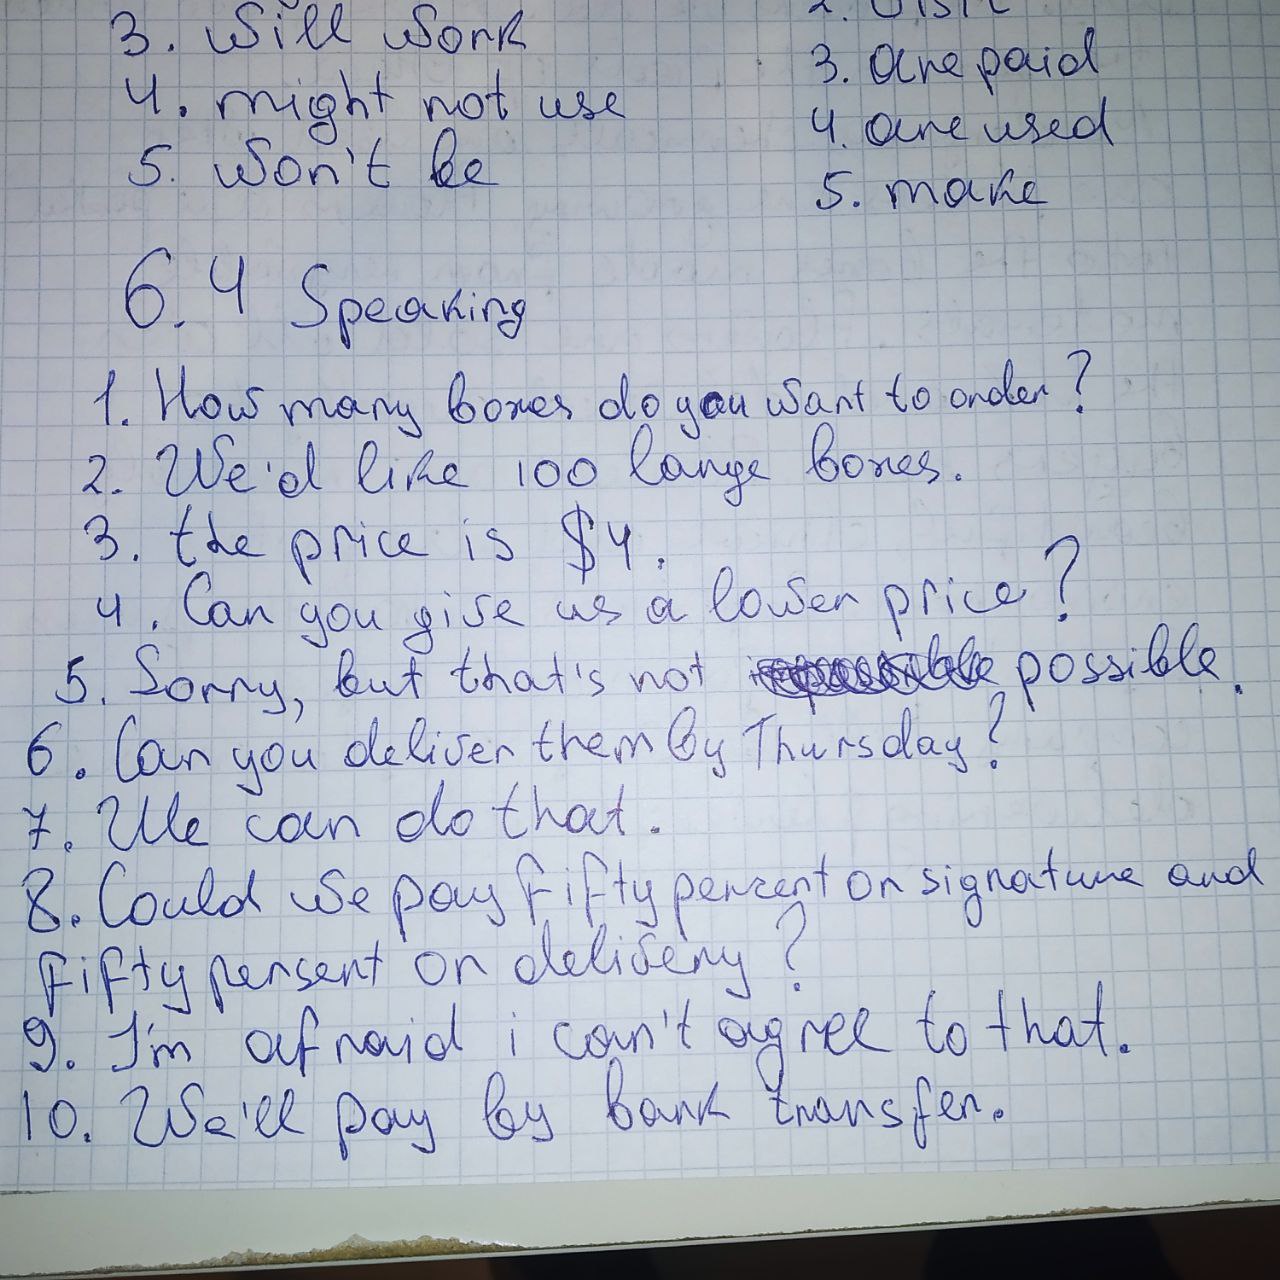 3. will work
4. might not use
5. won't be
3. are paid
4. are used
5. make
6.4 Speaking
1. How many boxes do you want to order?
2. We'd like 100 large boxes.
3. the price is $4.
4. Can you give us a lower price?
5. Sorry, but that's not possible.
6. Can you deliver them by Thursday?
7. We can do that.
8. Could we pay fifty percent on signature and
fifty persent on delivery?
9. I'm afraid i can't agree to that.
10. We'll pay by bank transfer.